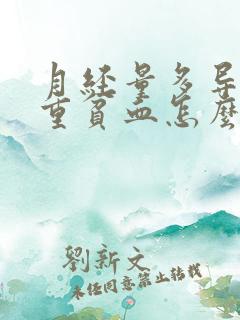 月經量多導
重貧血怎麼
劉新文
未經同意禁止轉載